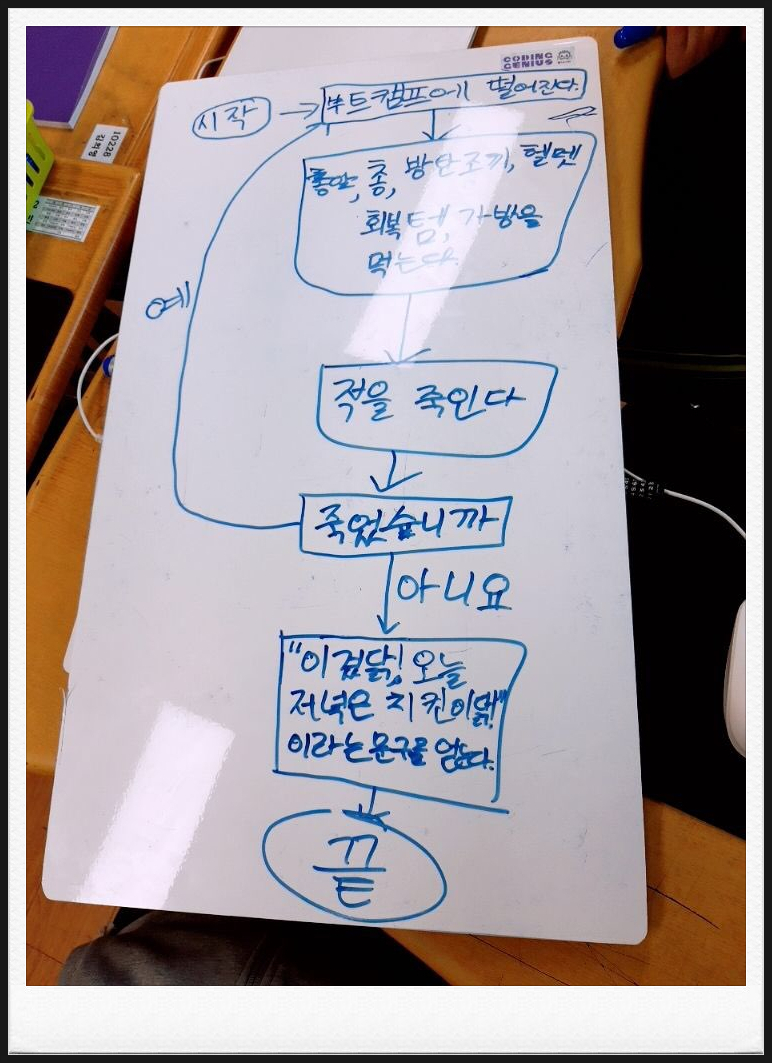 CODING
GENIUS
시작
부트캠프에 떨어진다.
총알, 총, 방탄조끼, 헬멧
회복템, 가방을
먹는다.
예
적을 죽인다
죽었습니까
아니요
"이겼닭! 오늘
저녁은 치킨이닭!"
이라는 문구를 얻는다.
끝
10228